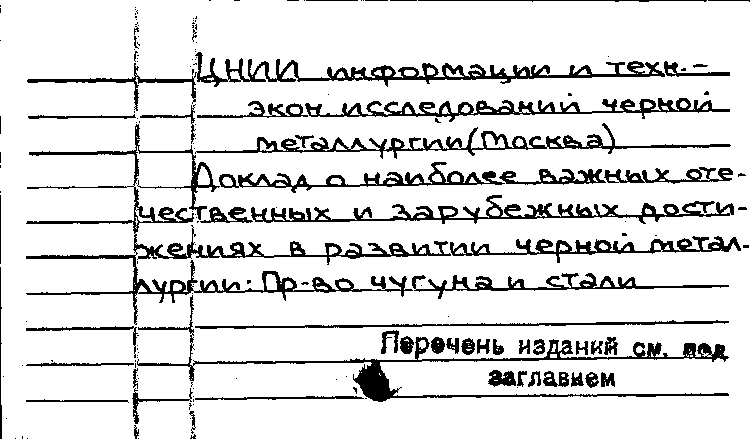 ЦНИИ информации и техн.-
экон. исследований черной
металлургии (Москва)
Доклад о наиболее важных оте-
чественных и зарубежных дости-
жениях в развитии черной метал-
лургии: Пр-во чугуна и стали
Перечень изданий см. под
заглавием